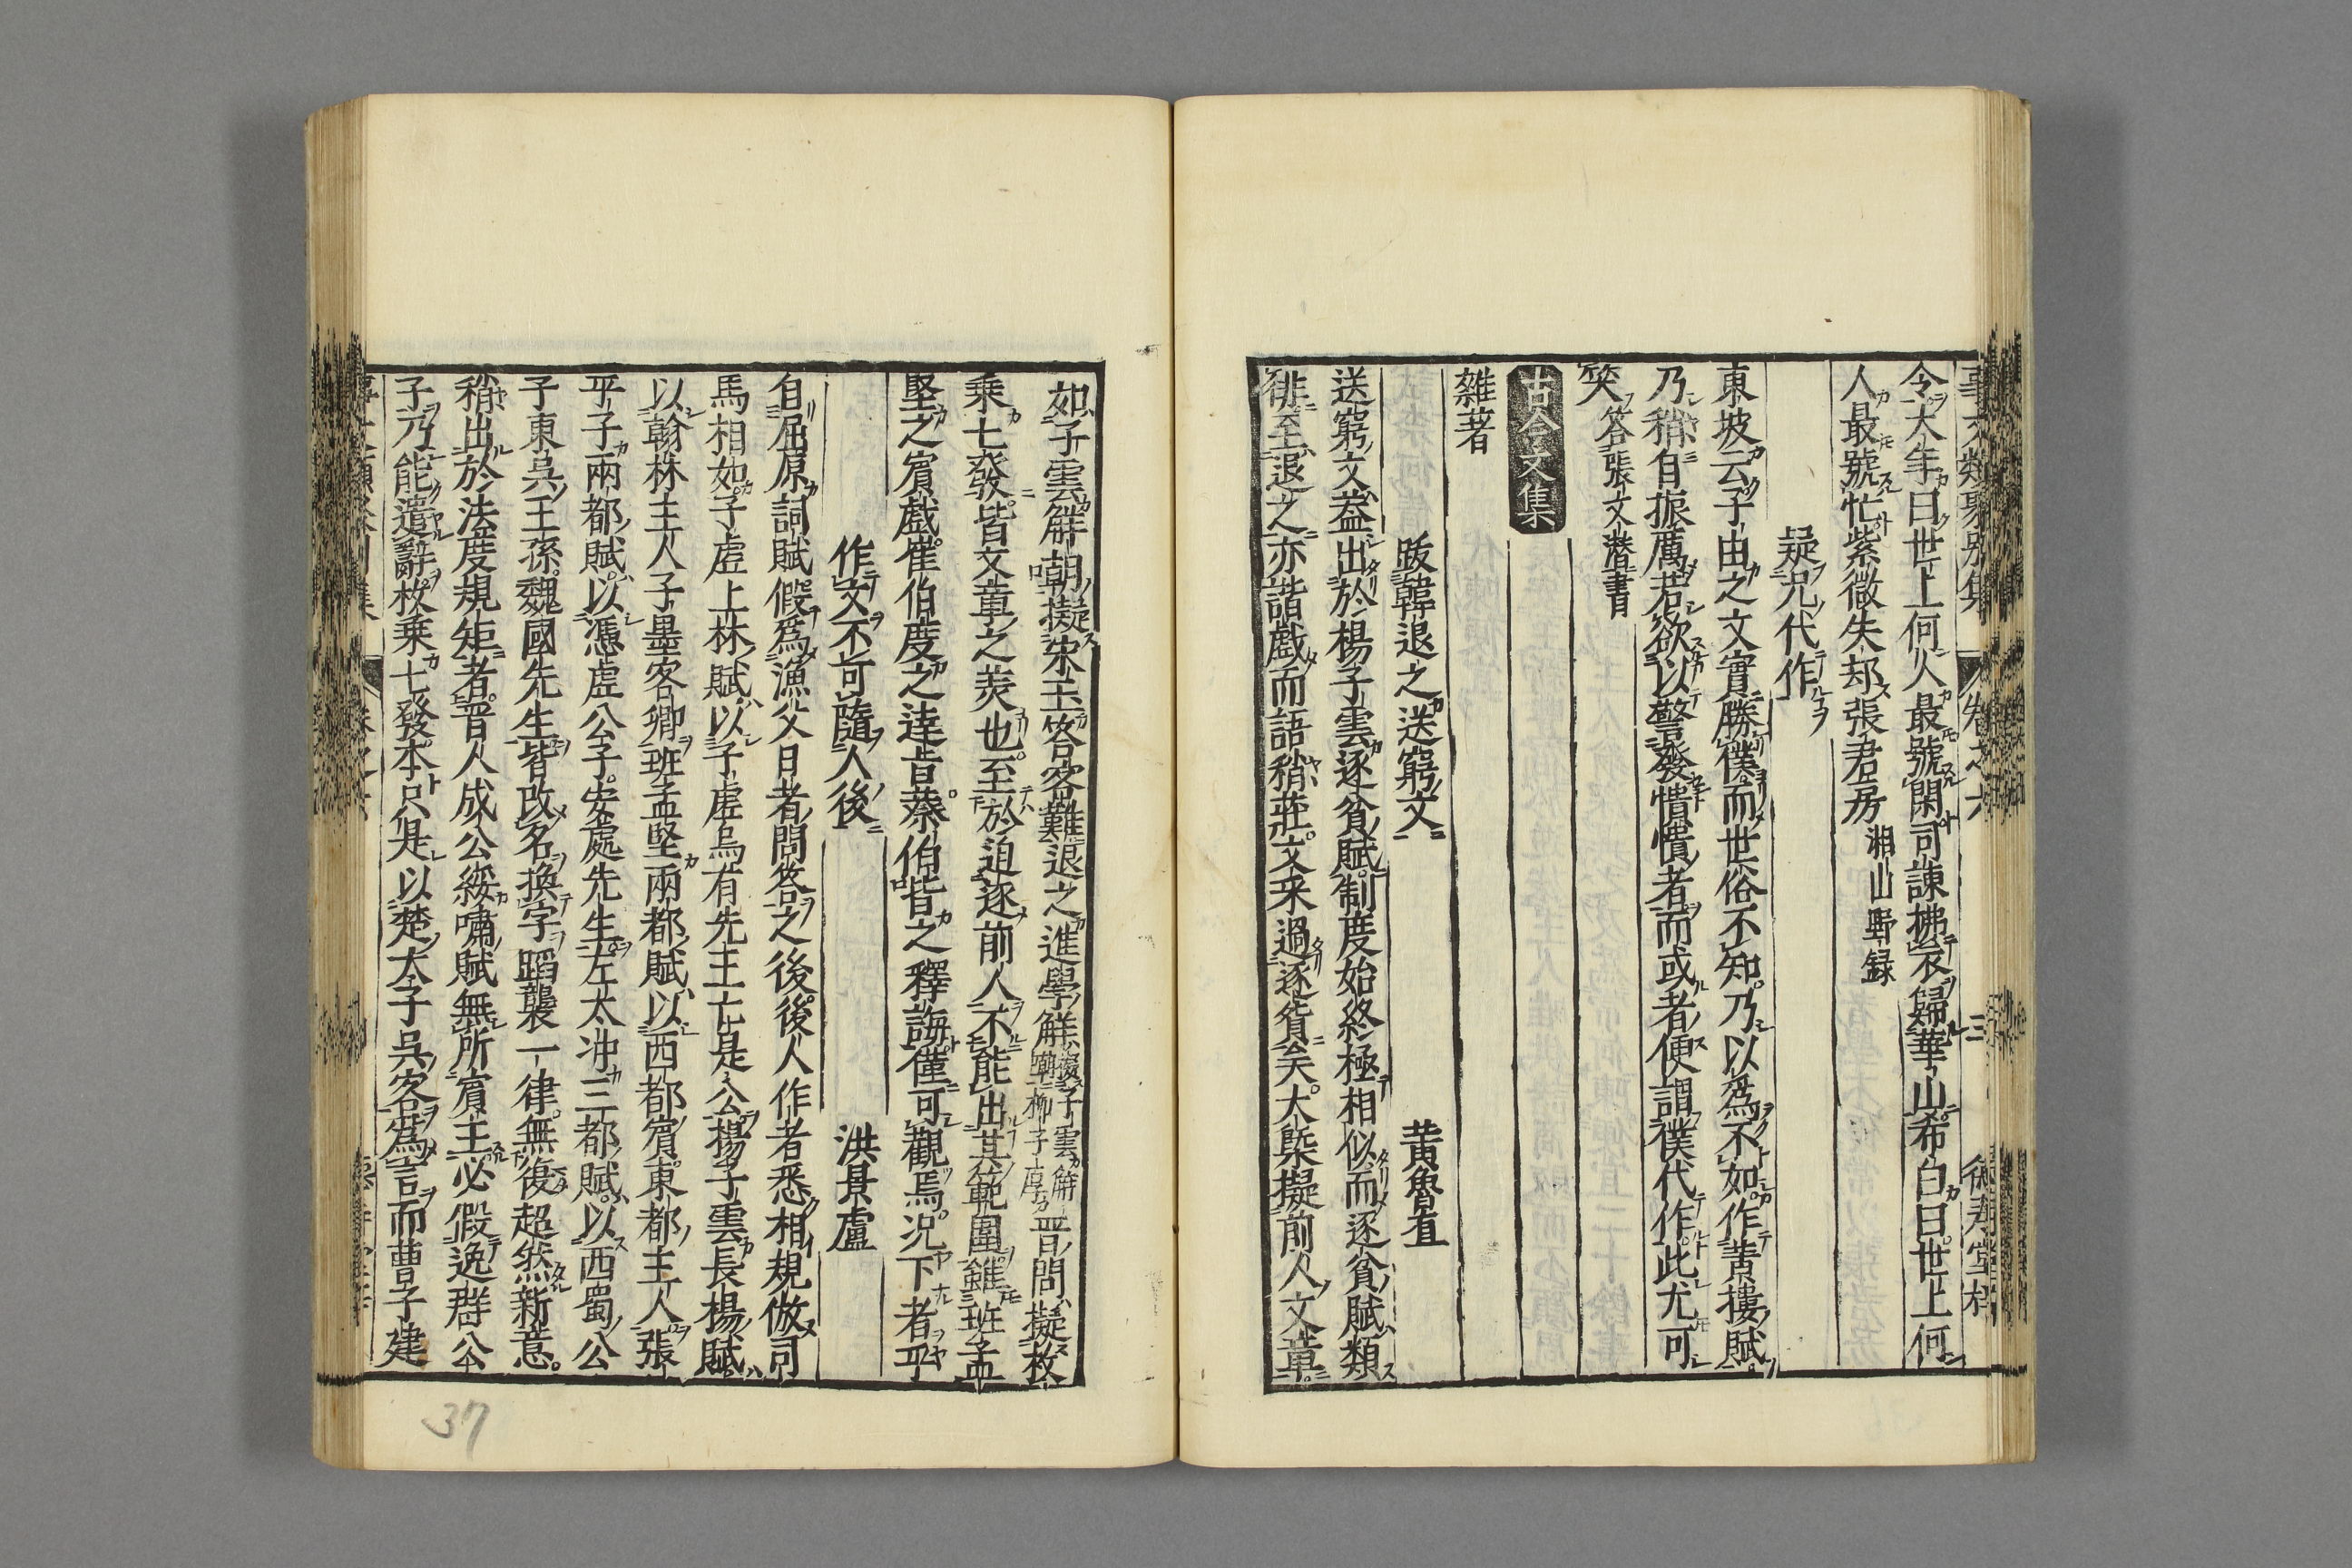 事文類聚別集 卷之六 三
令大年曰世上何人最號閑司諫拂衣歸華山希白曰世上何
人最號忙紫微失却張君房湘山野録
疑况代作
東坡云子由之文實勝僕而世俗不知乃以爲不如作黄摟賦
乃稍自振厲若欲以警發憒憒者而或者便謂僕代作此尤可
笑答張文潜書
古今文集
雜著
跋韓退之送窮文 黄魯直
送窮文蓋出於楊子雲逐貧賦制度始終極相似而逐貧賦類
俳至退之亦諧戲而語稍莊文采過逐貧矣大槩擬前人文章
如子雲觧嘲擬宋玉答客難退之進學觧擬子雲觧嘲柳子厚晋問擬枚
乗七發皆文章之美也至於追逐前人不能出其範圍雖班孟
堅之賔戲崔伯度之達旨蔡伯喈之釋誨僅可觀焉况下者乎
作文不可隨人後 洪景盧
自屈原詞賦假爲漁父日者問答之後後人作者悉相規倣司
馬相如子虚上林賦以子虚烏有先生亡是公揚子雲長楊賦
以翰林主人子墨客卿班孟堅兩都賦以西都賔東都主人張
平子兩都賦以憑虚公子安處先生左太冲三都賦以西蜀公
子東呉王孫魏國先生皆改名換字蹈襲一律無復超然新意
稍出於法度規矩者晉人成公綏嘯賦無所賔主必假逸群公
子乃能遣辭枚乗七發本只是以楚太子呉客爲言而曹子建
37